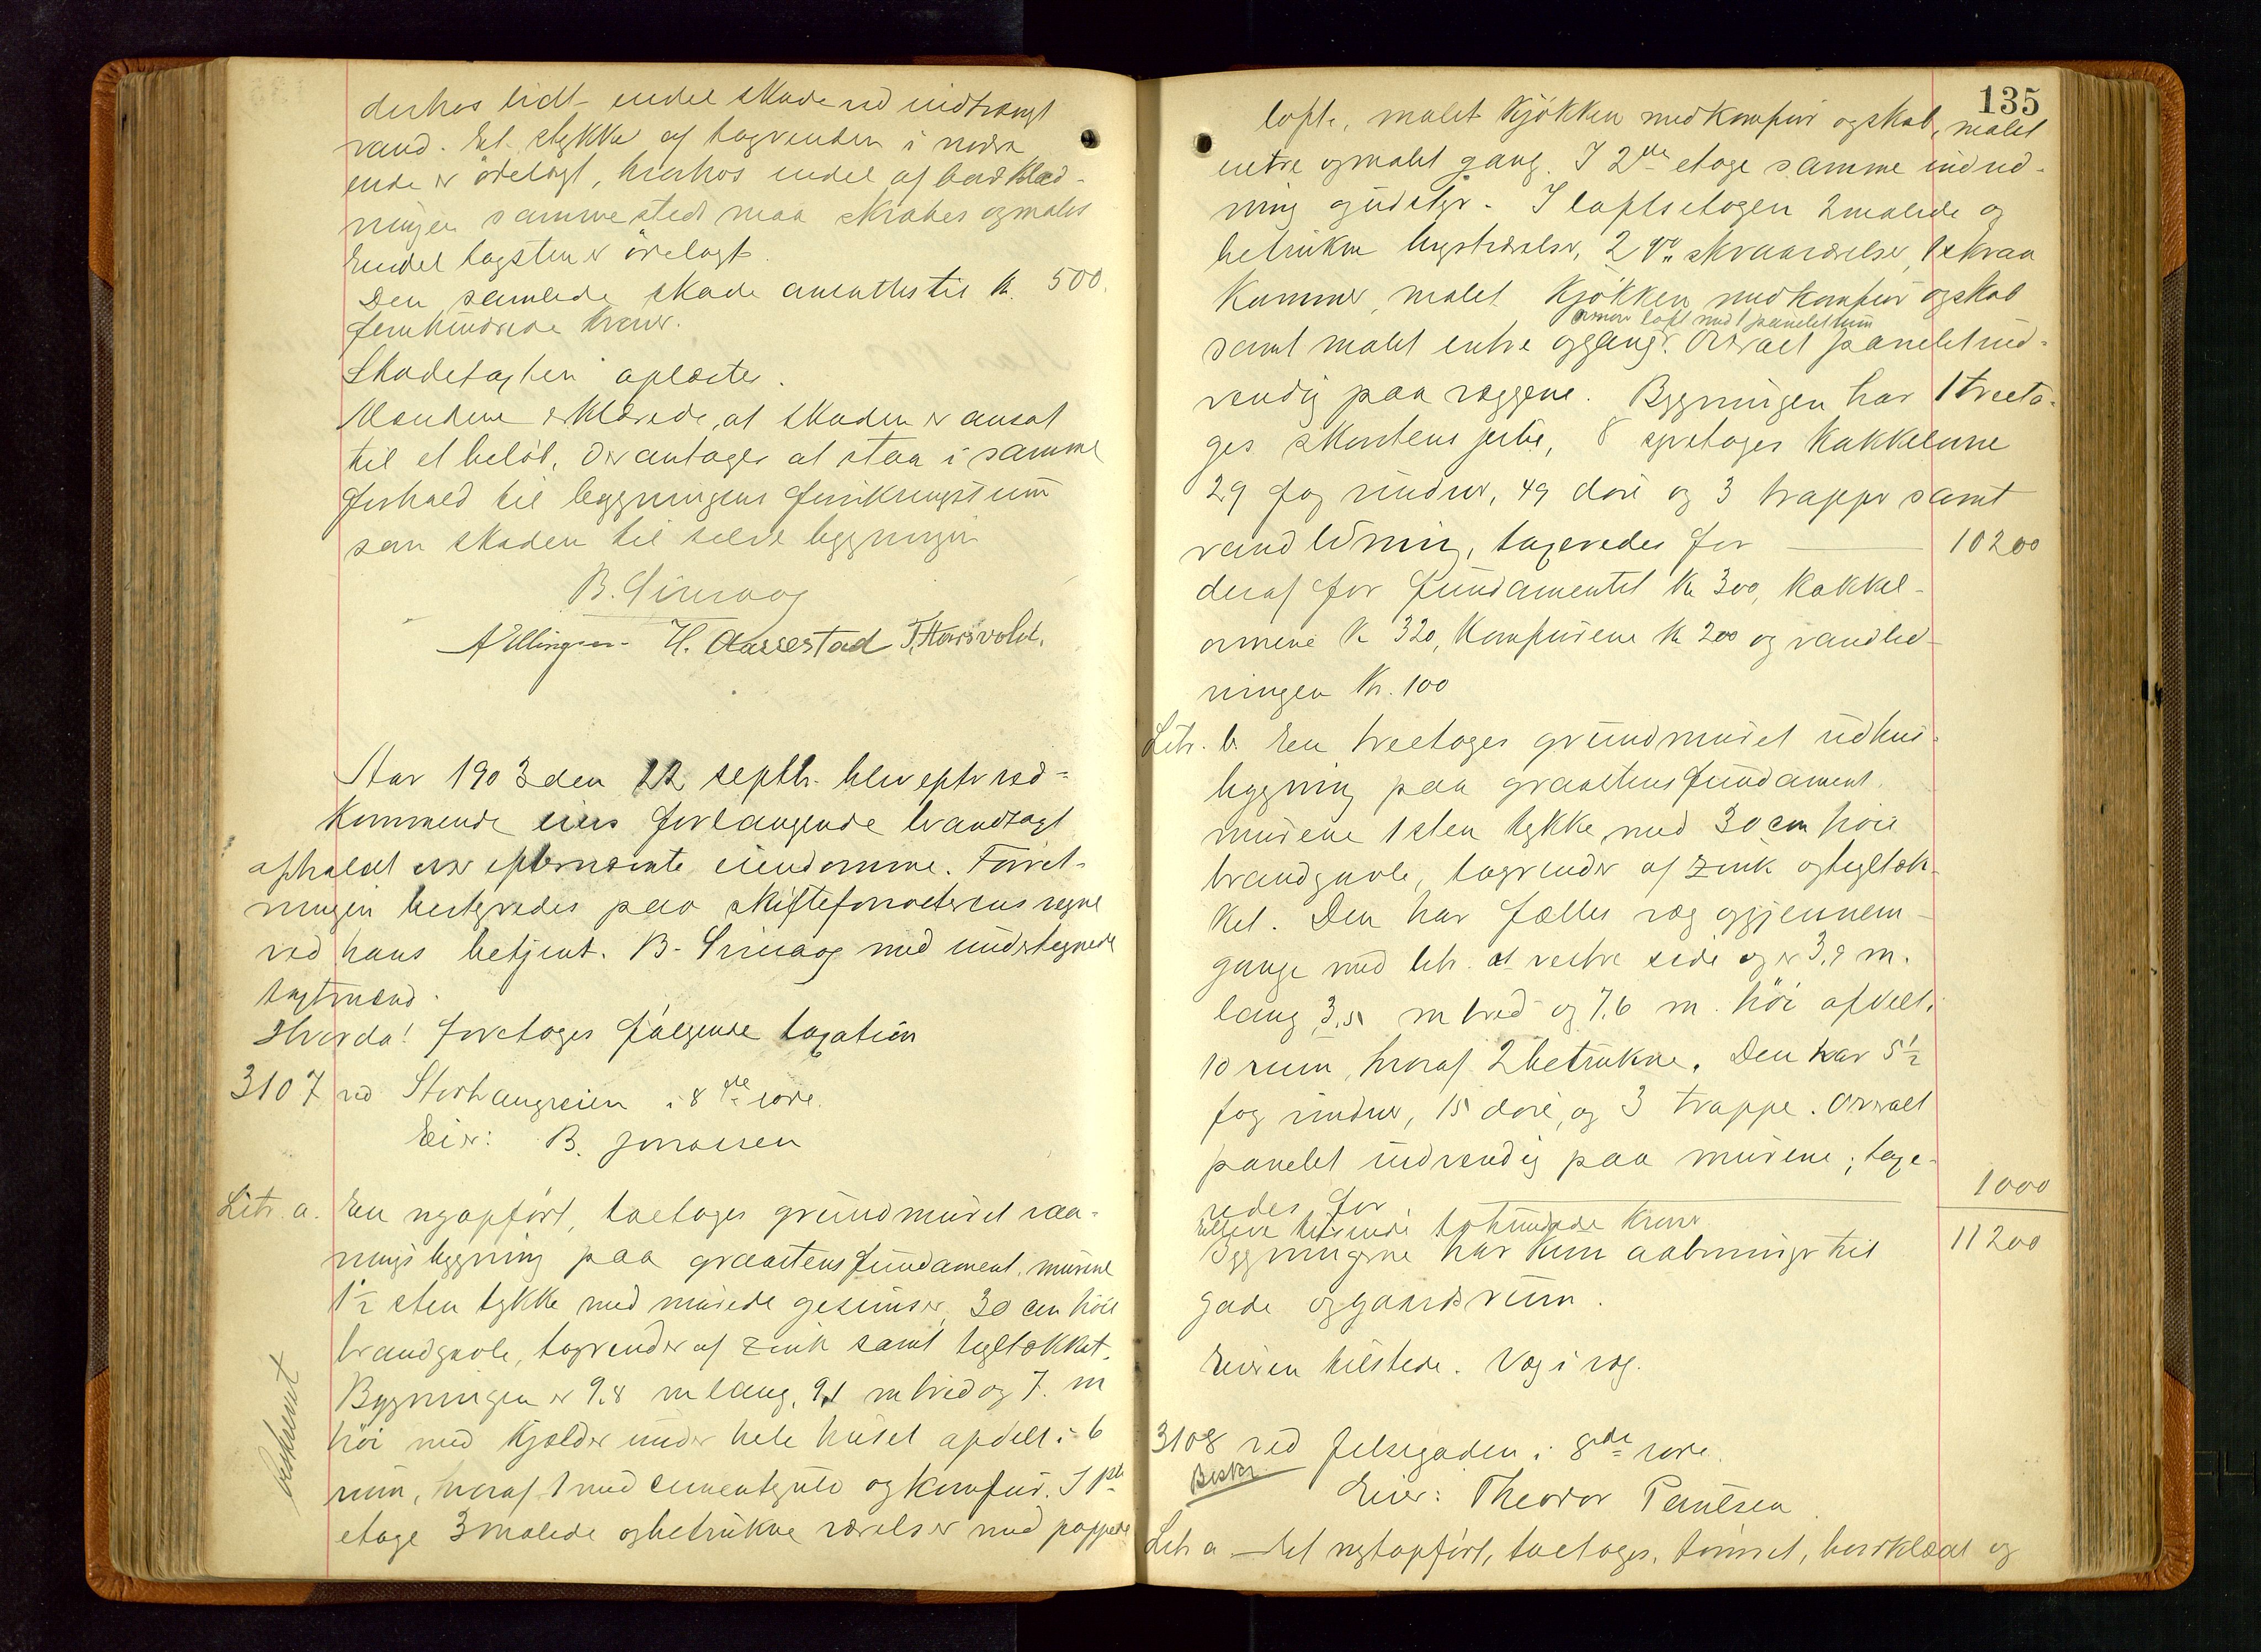 derhos lidt endel skade ved indtrængt
vand. Et stykke af tagrenden i nordre
ende er ödelagt, hvorhos endel af bordklæd-
ningen sammesteds maa skrabes og males
Endel tagsten er ödelagt.
Den samlede skade ansattes til kr. 500.
femhundrede kroner.
Skadetaxten oplæstes.
Mændene erklærede, at skaden er ansat
til et belöb, der antages at staa i samme
forhold til bygningens forsikringssum
som skaden til selve bygningen
B. Simaog
A Ellingsen H. Aarrestad T. Horsvold.
Aar 1903 den 22 septbr. blev efter ved-
kommende eiers forlangende brandtaxt
afholdt over efternævnte eiendomme. Forret-
ningen bestyredes paa skifteforvalterens vegne
ved hans betjent. B. Simaog med undertegnede
taxtmænd.
Hvorda! foretoges fölgende taxation
3107 ved Storhaugveien i 8de rode.
Eier: B. Jonassen
Litr. a. En nyopfört, toetages grundmuret vaa-
ningsbygning paa graastensfundament, murene
1½ sten tykke med murede gesimser, 30 cm höie
brandgavle, tagrender af zink samt tegltækket.
Bygningen er 9.8 m lang, 9,1 m bred og 7. m
höi med kjælder under hele huset afdelt i 6
rum, hvoraf 1 med cementgulv og komfur. I 1ste
etage 3 malede og betrukne værelser med pappede
beskrevet
135
lofte, malet kjökken med komfur og skab, malet
entre og malet gang. I 2den etage samme indred-
ning og udstyr. I loftsetagen 2 malede og
betrukne kvistværelser, 2 do skraaværelser, 1 skraa
kammer, malet kjökken med komfur og skab
överst loft med 1 panelet rum
samt malet entre og gang. Overalt panelet ind-
vendig paa væggene. Bygningen har 1 treeta-
ges skorstenspibe, 8 etages kakkelovne
29 fag vinduer, 49 döre og 3 trapper samt
vandledning, taxeredes for — 10200
deraf for fundamentet kr 300, kakkel-
ovnene kr 320, komfurene kr 200 og vandled-
ningen kr. 100
Litr. b. En treetages grundmuret udhus-
bygning paa graastensfundament.
murene 1 sten tykke med 30 cm höie
brandgavle, tagrender af zink og tegltæk-
ket. Den har fælles væg og gjennem-
gange med litr. a's vestre side og er 3,9 m.
lang, 3,5 m bred og 7,6 m. höi afdelt i
10 rum, hvoraf 2 betrukne. Den har 5½
fag vinduer, 15 döre, og 3 trappe. Overalt
panelet indvendig paa murene; taxe-
redes for — 1000
Elleve tusinde tohundrede kroner. 11200
Bygningerne har kun aabninger til
gade og gaardsrum.
Eieren tilstede. Væg i væg.
3108 ved Jelsegaden i 8de rode.
Beskr.
Eier: Theodor Paulsen
Litr a Et nyopfört, toetages, tömret, bordklædt og